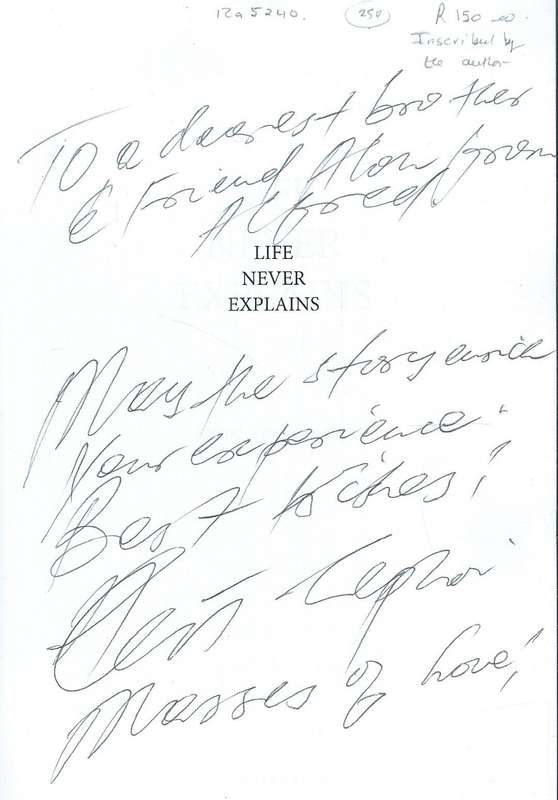 Ra5240. 250 R150-00.
Inscribed by
the author
To a dearest brother
& Friend Alon from
Alfred.
LIFE
NEVER
EXPLAINS
May the story enrich
Your experience!
Best Wishes!
Masses of Love!